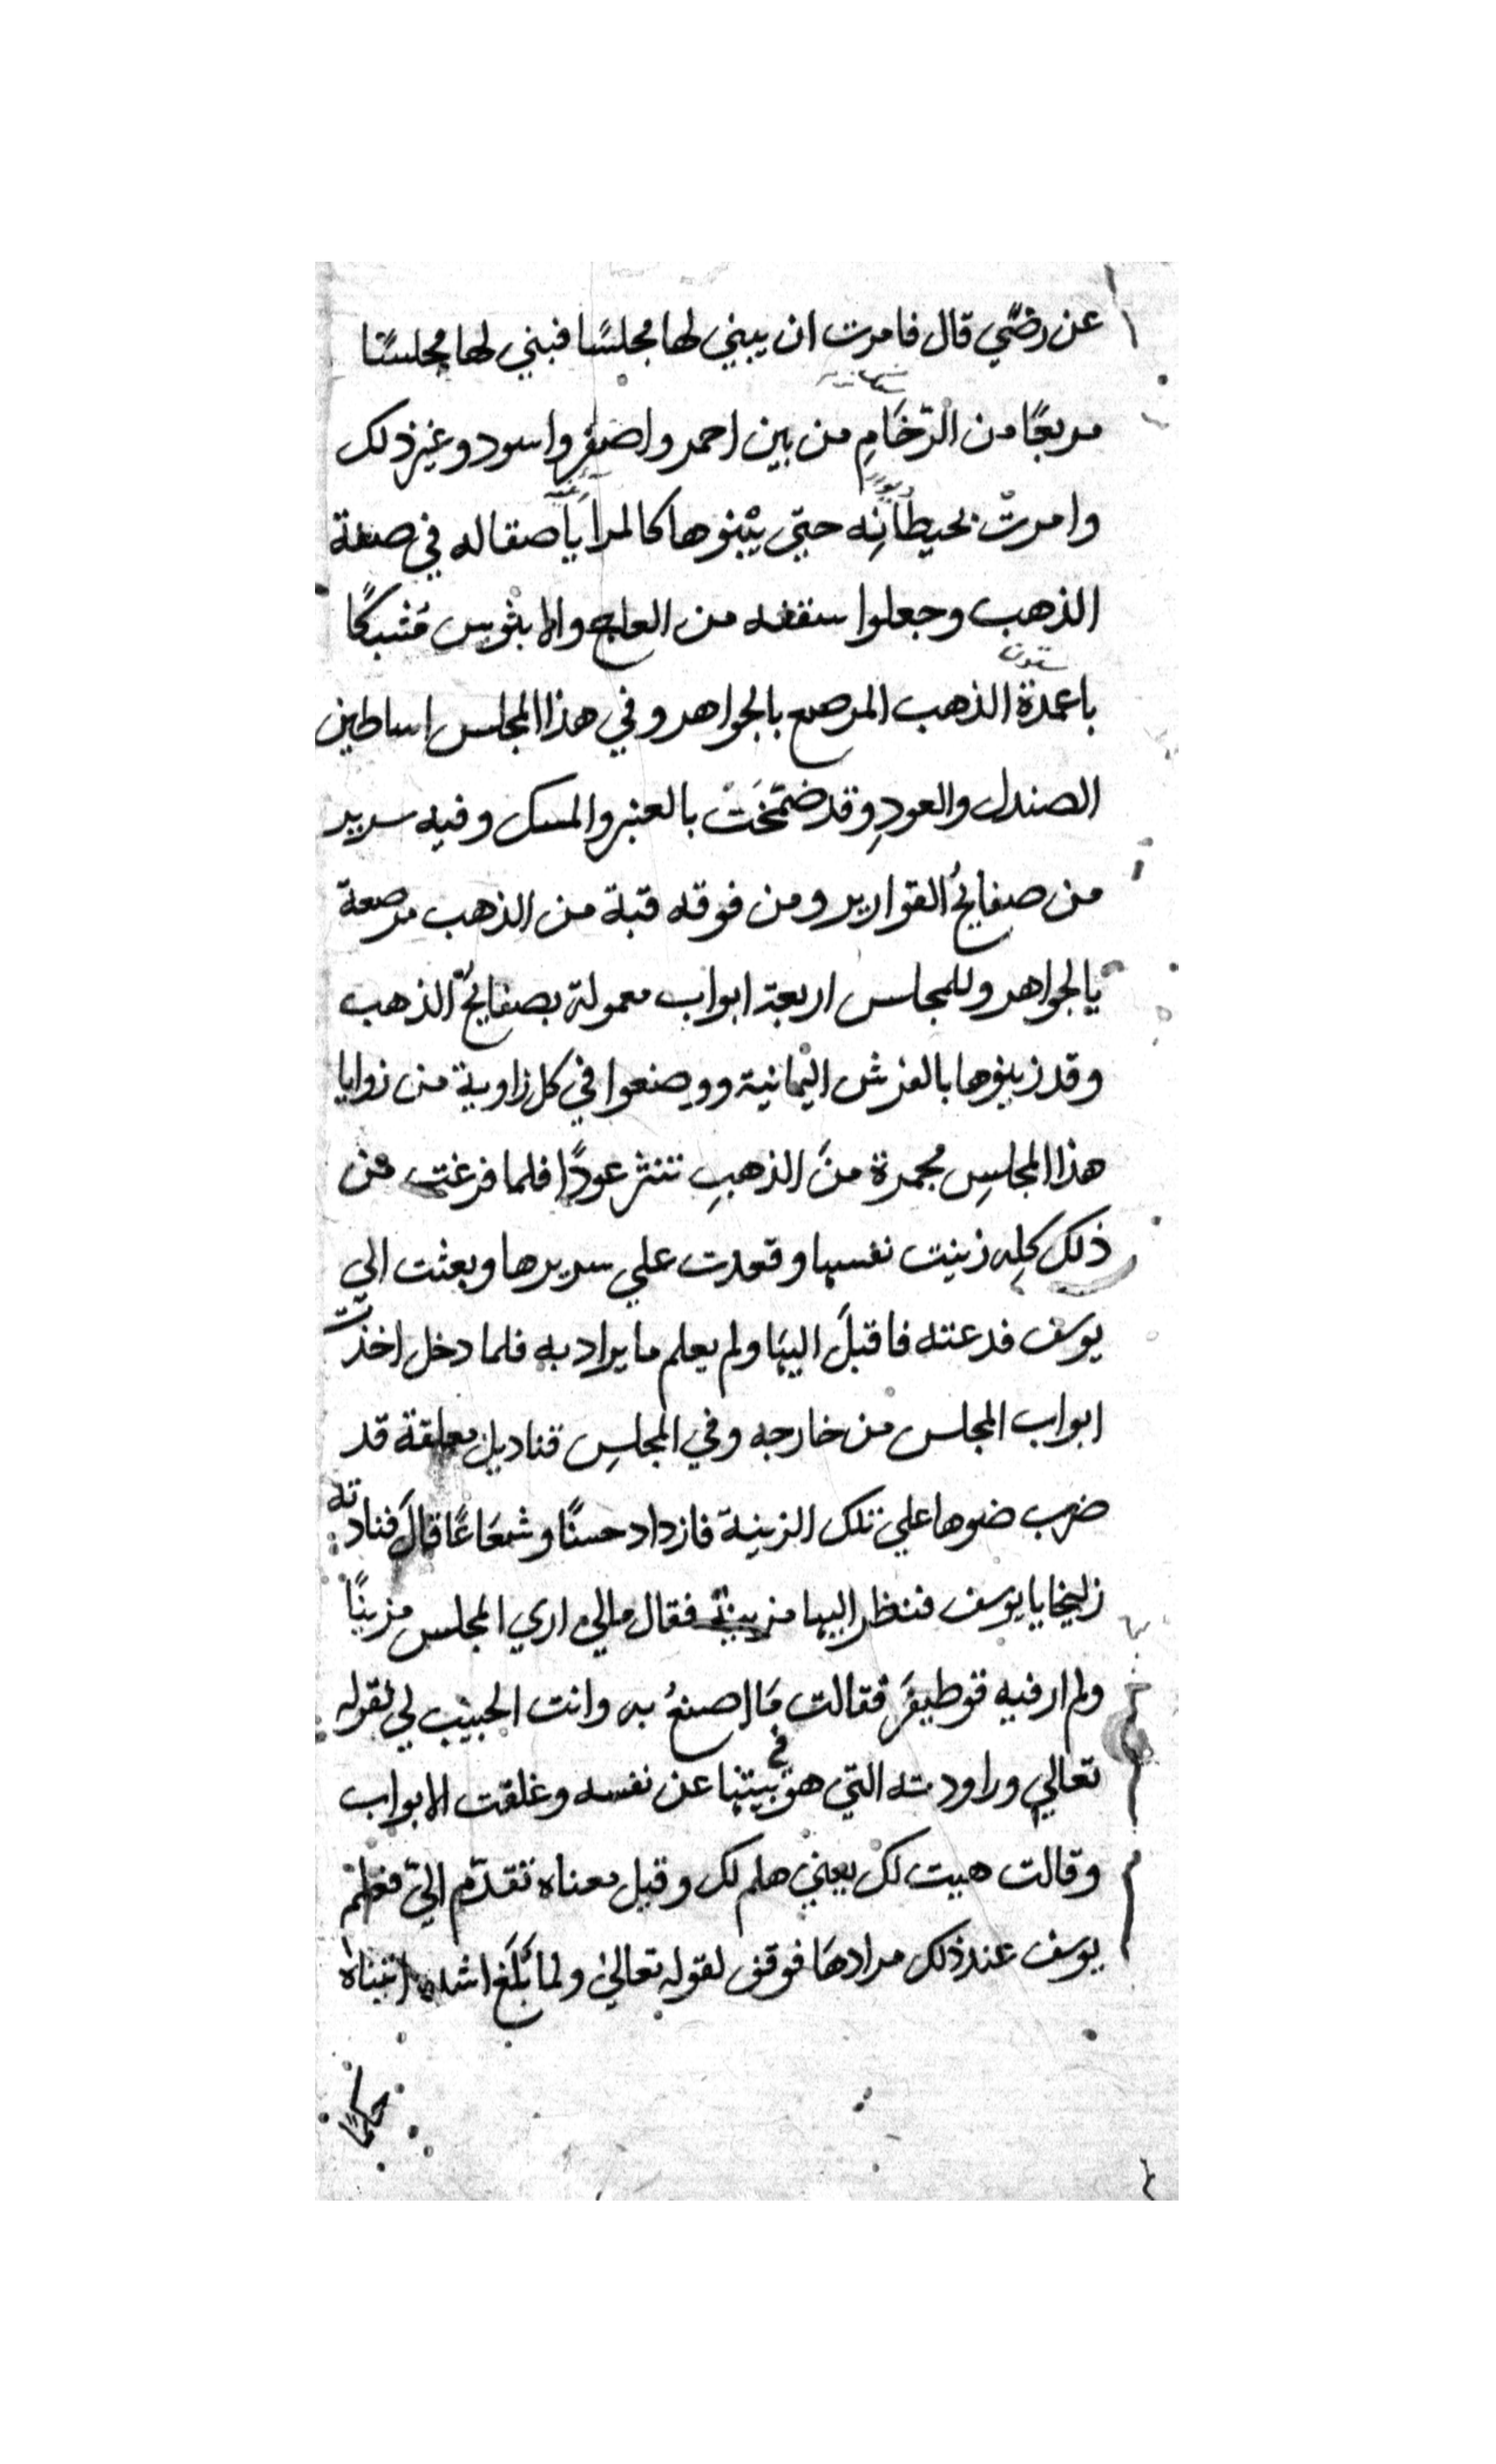 عن رضًي قال فامرت ان يبني لها مجلسًا فبني لها مجلسًا
مربعًا من الرّخَامِ من بين احمر واصفر واسود وغير ذلك
وامرتْ بحيطانِه حتي يبنوها كالمرايا صقاله في صنعة
الذهب وجعلوا سقفه من العاج والابنوس مشبكًا
ستون
باعمدة الذهب المرصع بالجواهر وفي هذا المجلس اساطين
الصندل والعودِ وقد ضمّختْ بالعنبر والمسك وفيه سرير
من صفايح القوارير ومن فوقه قبة من الذهب مرصعة
بالجواهر وللمجلس اربعة ابواب معمولة بصفايح الذهب
وقد زينوها بالفرش اليمانية ووصنعوا في كل زاوية من زوايا
هذا المجلسِ مجمرة منَ الذهبِ تنثر عودًا فلما فرغت من
ذلك كلِه زينت نفسها وقعدت علي سريرها وبعثت الي
يوسف فدعته فاقبلَ اليها ولم يعلم ما يراد به فلما دخل اخذت
ابواب المجلس من خارجه وفي المجلسِ قناديل معلقة قد
ضرب ضوها علي تلك الزينة فازداد حسنًا وشعَاعًا قالَ فنادته
زليخا يا يوسف فنظر اليها مزينة فقال مالي اري المجلس مزينًا
ولم ار فيه قوطيفرَ فقالت مَا اصنعُ به وانت الحبيب لي لقوله
تعالي وراودته التي هو في بيتها عن نفسه وغلقت الابواب
وقالت هيت لك يعني هلم لك وقيل معناه تقدّم اليّ فعلم
يوسف عند ذلك مرادهَا فوقف لقوله تعالي ولما بَلَغَ اشده اتيناه
حكمًا